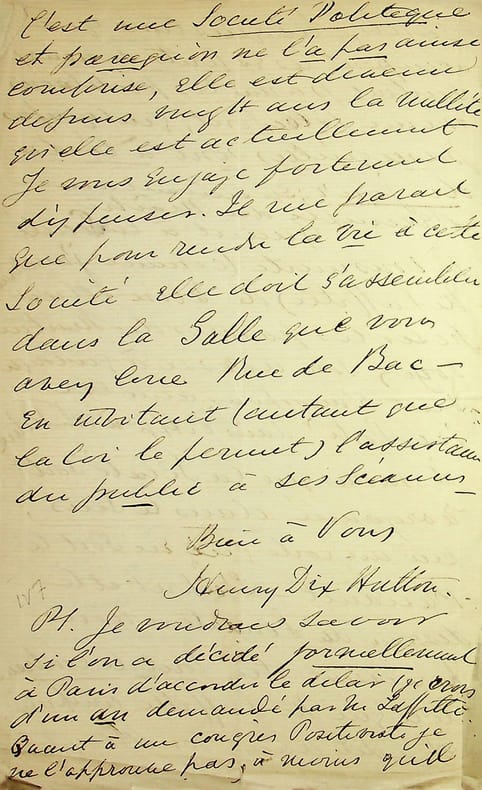 C'est une Société Politique
et parcequ'on ne l'a pas ainsi
comprise, elle est devenue
depuis vingt ans la nullité
qu'elle est actuellement
Je vous engage fortement
d'y penser. Il me parait
que pour rendre la vie à cette
Société elle doit s'assembler
dans la Salle que vous
avez loué Rue de Bac —
En invitant (autant que
la loi le permet) l'assistance
du public à ses Séances_
Bien à Vous
Henry Dix Hutton.
PS. Je voudrais savoir
si l'on a décidé formellement
à Paris d'accorder le délai (je crois
d'un an demandé par M. Laffitte.
Quant à un congrès Positiviste je
ne l'approuve pas, à moins qu'il